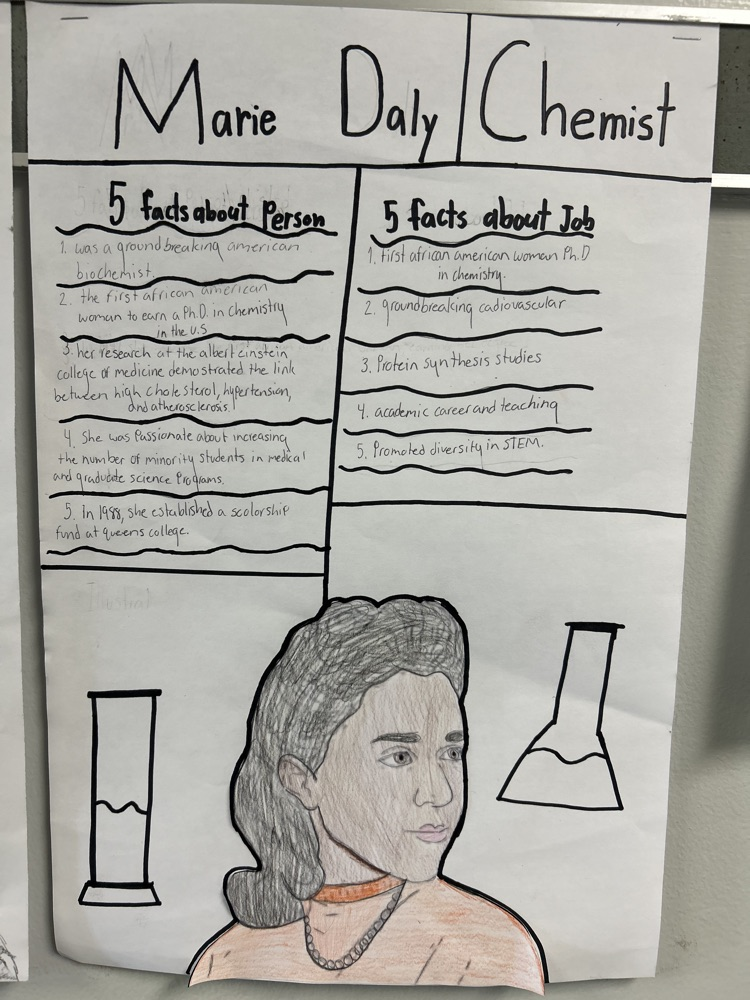 Marie Daly
Chemist
5 facts about Person
1. was a groundbreaking american
biochemist.
2. the first african american
woman to earn a Ph.D. in chemistry
in the U.S
3. her research at the albert einstein
college of medicine demostrated the link
between high cholesterol, hypertension,
and atherosclerosis.
4. She was Passionate about increasing
the number of minority students in medical
and graduate science Programs.
5. In 1988, she established a scolorship
fund at queens college.
5 facts about Job
1. First african american woman Ph.D
in chemistry.
2. groundbreaking cadiovascular
3. Protein synthesis studies
4. academic career and teaching
5. Promoted diversity in STEM.